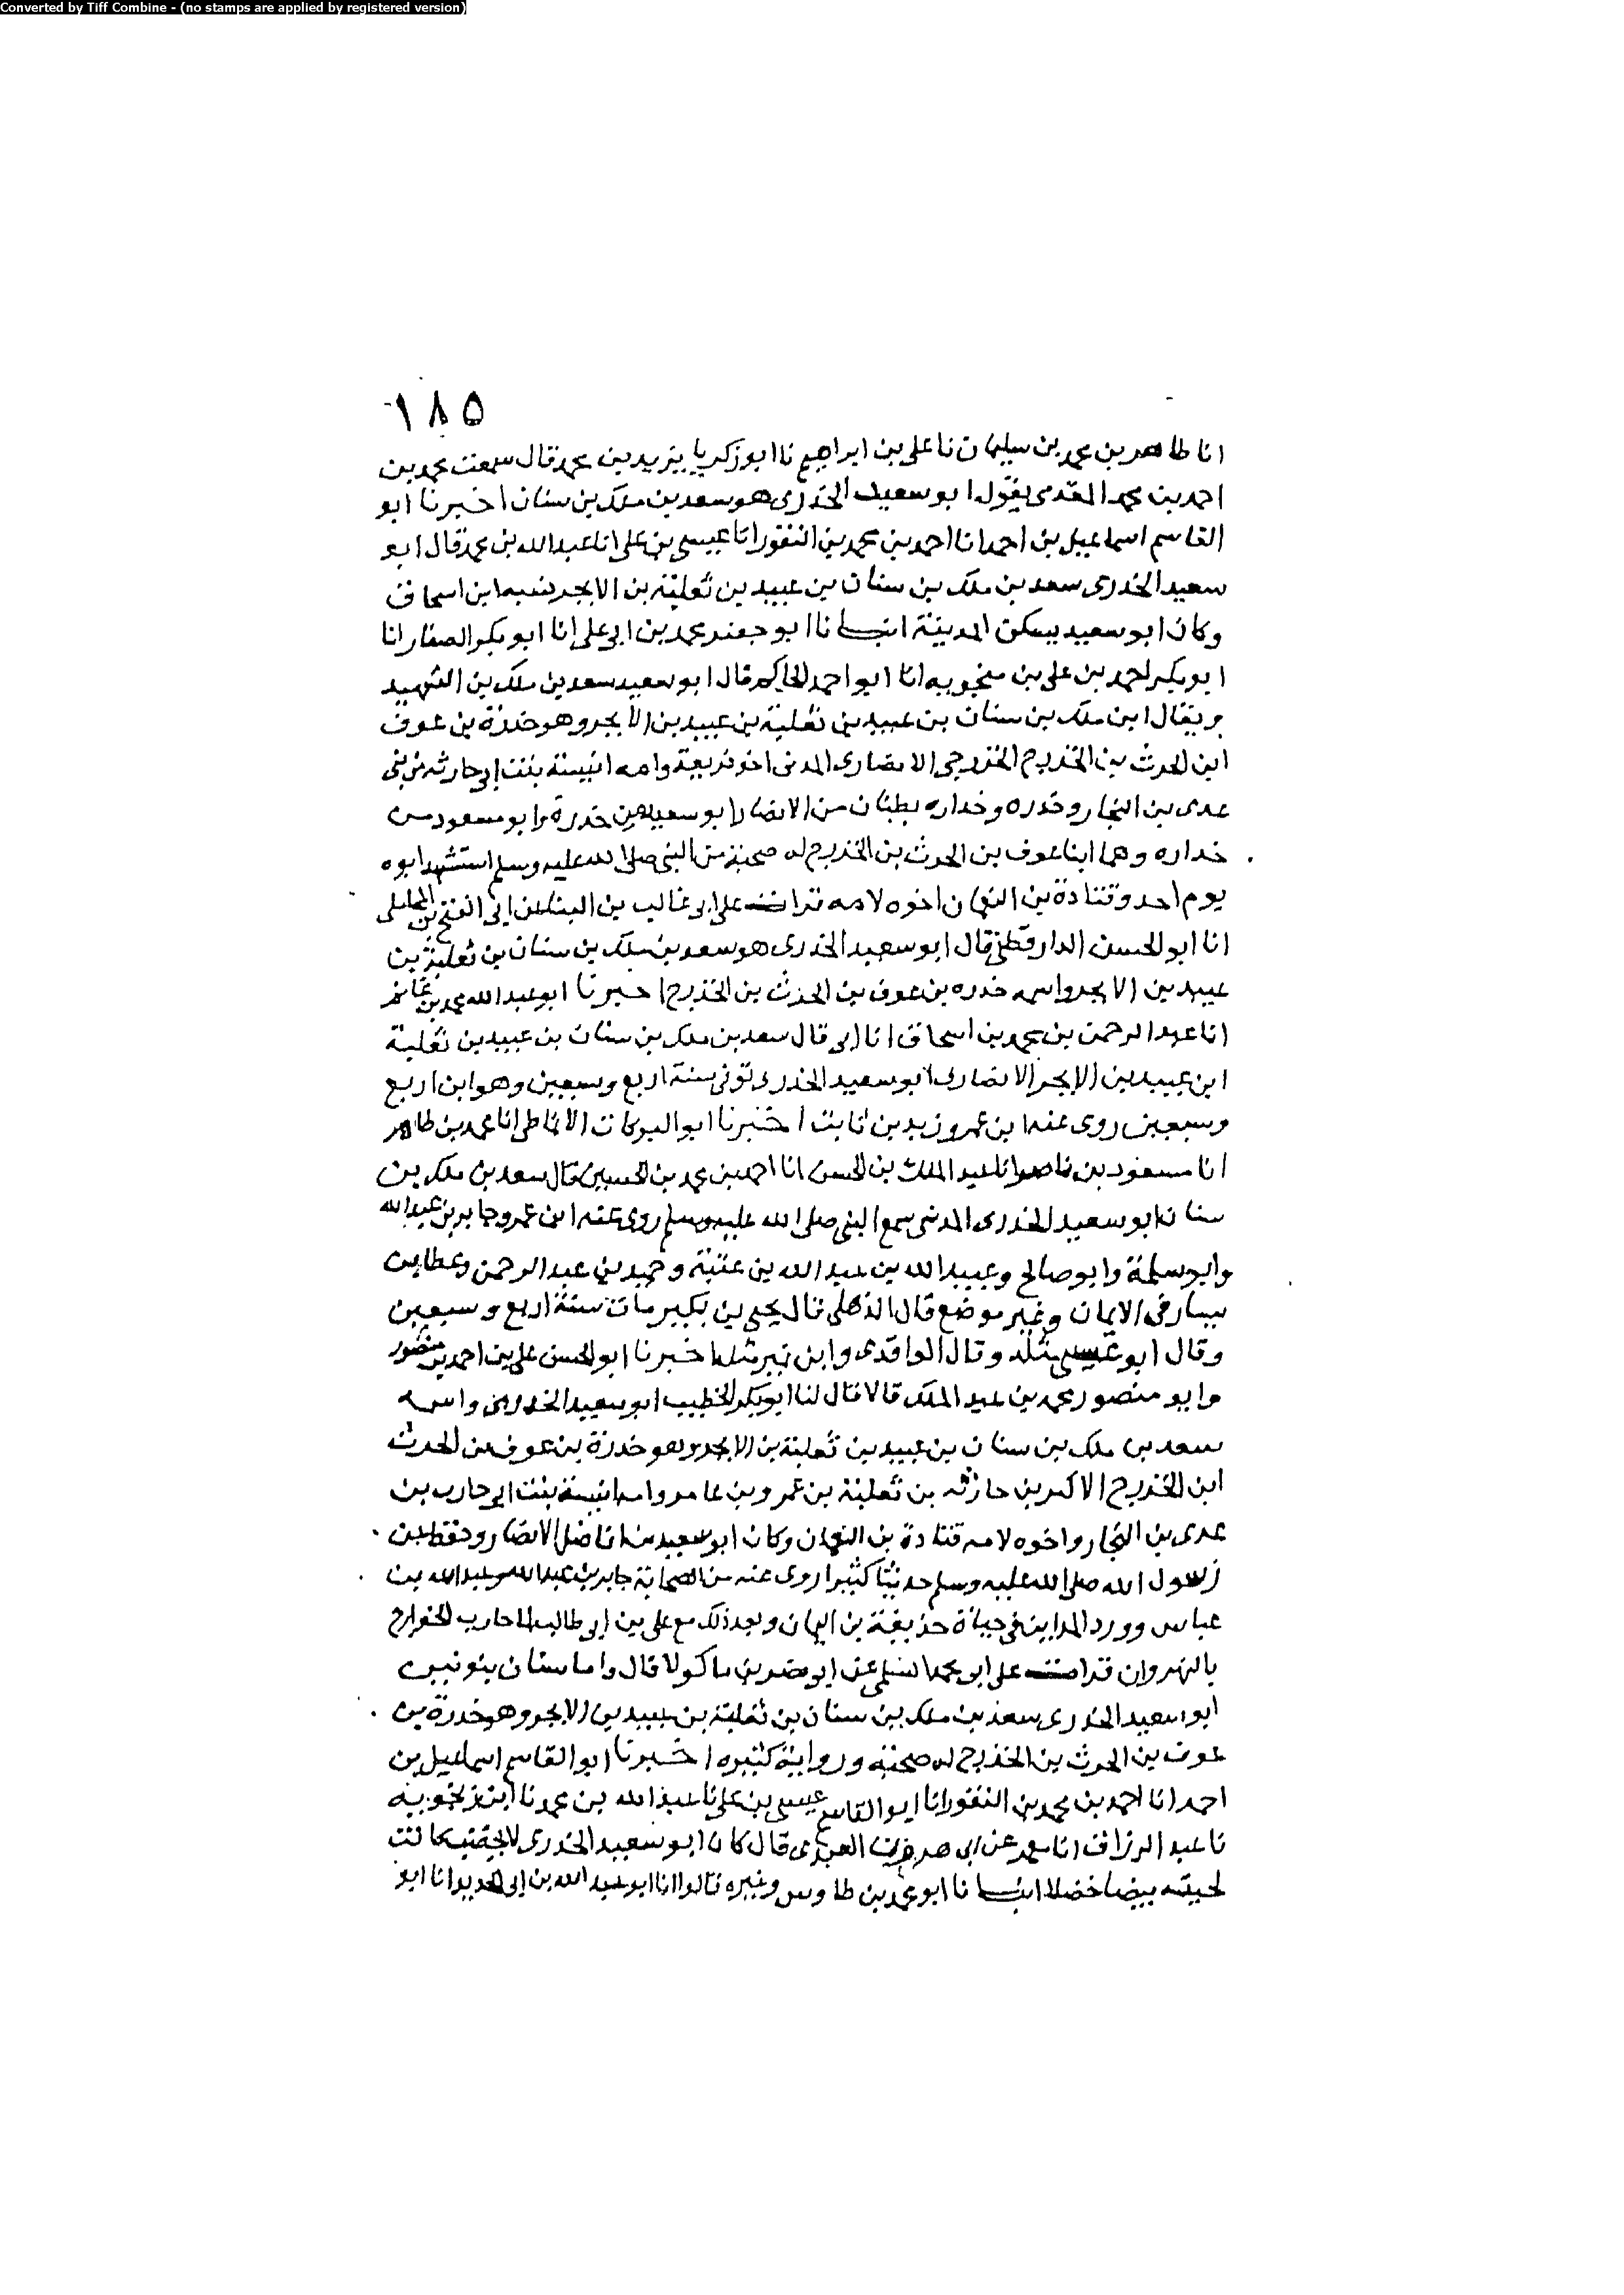 Converted by Tiff Combine - (no stamps are applied by registered version)
١٨٥
انا طاهر بن محمد بن سليمان نا علي بن ابراهيم نا ابو زكريا يزيد بن محمد قال سمعت محمد بن
احمد بن محمد المقدمى يقول ابو سعيد الخدرى هو سعد بن ملك بن سنان اخبرنا ابو
القاسم اسماعيل بن احمد انا احمد بن محمد بن النقور انا عيسى بن على انا عبد الله بن محمد قال ابو
سعيد الخدرى سعد بن ملك بن سنان بن عبيد بن ثعلبة بن الابجر نسبه ابن اسحاق
وكان ابو سعيد يسكن المدينة انبانا ابو جعفر محمد بن ابى على انا ابو بكر الصفار انا
ابو بكر احمد بن على بن منجويه انا ابو احمد الحاكم قال ابو سعيد سعد بن ملك بن الشهيد
ويقال ابن ملك بن سنان بن عبيد بن ثعلبة بن عبيد بن الابجر وهو خدرة بن عوف
ابن الحرث بن الخزرج الخزرجى الانصارى المدنى اخو فريعة وامه انيسة بنت ابى حارثه من بنى
عدى بن النجار وخدره وخداره بطنان من الانصار ابو سعيد من خدرة وابو مسعود من
خداره وهما ابنا عوف بن الحرث بن الخزرج له صحبة من النبى صلى الله عليه وسلم استشهد ابوه
يوم احد وقتادة بن النعمان اخوه لامه قرات على ابى غالب بن البنا عن ابى الفتح بن المحاملى
انا ابو الحسن الدارقطنى قال ابو سعيد الخدرى هو سعد بن ملك بن سنان بن ثعلبة بن
عبيد بن الابجر واسمه خدره بن عوف بن الحرث بن الخزرج اخبرنا ابو عبد الله محمد بن غانم
انا عبد الرحمن بن محمد بن اسحاق انا ابى قال سعد بن ملك بن سنان بن عبيد بن ثعلبة
ابن عبيد بن الابجر الانصارى ابو سعيد الخدرى توفى سنة اربع وسبعين وهو ابن اربع
وسبعين روى عنه ابن عمر وزيد بن ثابت اخبرنا ابو البركات الانماطى انا محمد بن طاهر
انا مسعود بن ناصر انا عبد الملك بن الحسن انا احمد بن محمد بن الحسين قال سعد بن ملك بن
سنان ابو سعيد الخدرى المدنى سمع النبى صلى الله عليه وسلم روى عنه ابن عمر وجابر بن عبد الله
وابو سلمة وابو صالح وعبيد الله بن عبد الله بن عتبة وحميد بن عبد الرحمن وعطا بن
يسار فى الايمان وغير موضع قال الذهلى قال يحيى بن بكير مات سنة اربع وسبعين
وقال ابو عيسى مثله وقال الواقدى وابن نمير مثله اخبرنا ابو الحسن على بن احمد بن منصور
وابو منصور محمد بن عبد الملك قالا قال لنا ابو بكر الخطيب ابو سعيد الخدرى واسمه
سعد بن ملك بن سنان بن عبيد بن ثعلبة بن الابجر وهو خدرة بن عوف بن الحرث
ابن الخزرج الاكبر بن حارثه بن ثعلبة بن عمرو بن عامر وامه انيسة بنت ابى حارب بن
عدى بن النجار واخوه لامه قتادة بن النعمان وكان ابو سعيد من افاضل الانصار وحفظ عن
رسول الله صلى الله عليه وسلم حديثا كثيرا روى عنه من الصحابة جابر بن عبد الله وعبد الله بن
عباس وورد المداين فى حياة حذيفة بن اليمان وبعد ذلك مع على بن ابى طالب لما حارب الخوارج
بالنهروان قرات على ابى محمد السلمى عن ابى نصر بن ماكولا قال واما سنان بنونين
ابو سعيد الخدرى سعد بن ملك بن سنان بن ثعلبة بن عبيد بن الابجر وهو خدرة بن
عوف بن الحرث بن الخزرج له صحبة ورواية كثيره اخبرنا ابو القاسم اسماعيل بن
احمد انا احمد بن محمد بن النقور انا ابو القاسم عيسى بن على نا عبد الله بن محمد نا ابن زنجويه
نا عبد الرزاق انا معمر عن ابى هرون العبدى قال كان ابو سعيد الخدرى لا يخضب كانت
لحيته بيضا خضلا انبانا ابو محمد بن طاوس وغيره قالوا انا ابو عبد الله بن ابى الحديد انا ابو